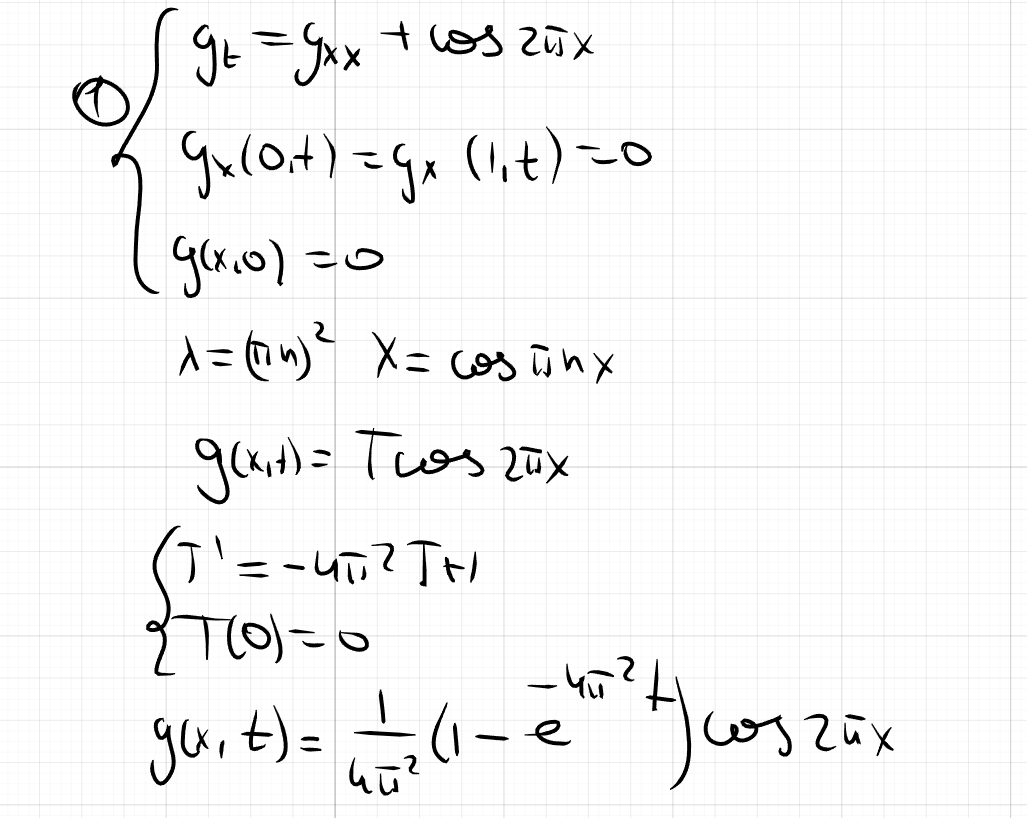 ① { g_t = g_xx + cos 2πx
g_x(0,t) = g_x(1,t) = 0
g(x,0) = 0
λ = (πn)² X = cos πnx
g(x,t) = T cos 2πx
{ T' = -4π² T + 1
T(0) = 0
g(x,t) = 1/4π² (1 - e^{-4π²t}) cos 2πx